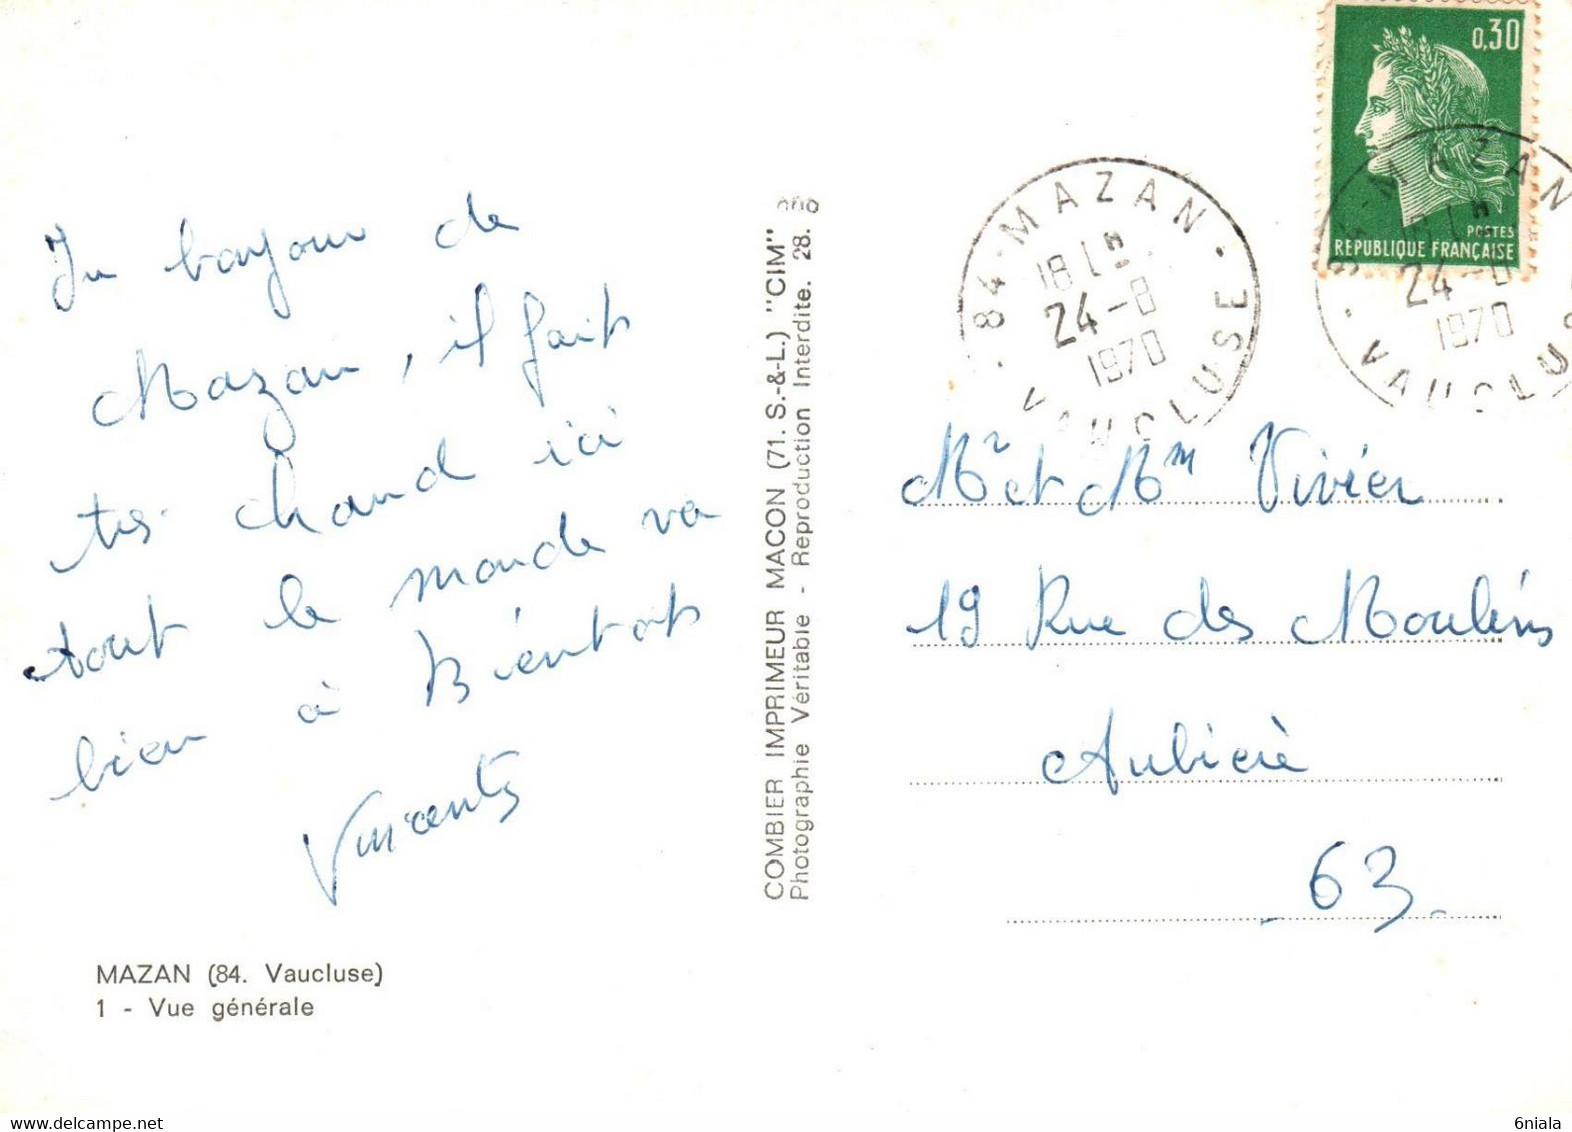 Un bonjour de
Mazan, il fait
tres chaud ici
tout le monde va
bien à Bientot
MAZAN (84. Vaucluse)
1 - Vue générale
COMBIER IMPRIMEUR MACON (71. S.-&-L.) "CIM"
Photographie Véritable - Reproduction Interdite. 28.
0,30
POSTES
REPUBLIQUE FRANÇAISE
84 · MAZAN · VAUCLUSE
18H
24-8
1970
84 · MAZAN
24-8
1970
VAUCLUSE
Mr et Mm Vivier
19 Rue des Moulins
Aubière
63.
6niala